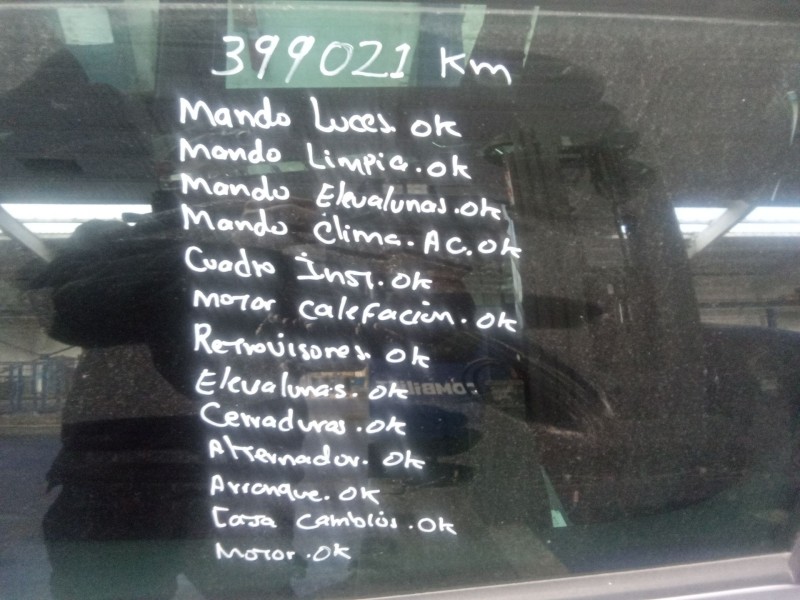 399021 Km
Mando Luces. ok
Mando Limpia. ok
Mando Elevalunas. ok
Mando clima. AC. ok
Cuadro Inst. ok
Motor calefacion. ok
Retrovisores. ok
Elevalunas. ok
Cerraduras. ok
Alternador. ok
Arranque. ok
Caja cambios. ok
Motor. ok